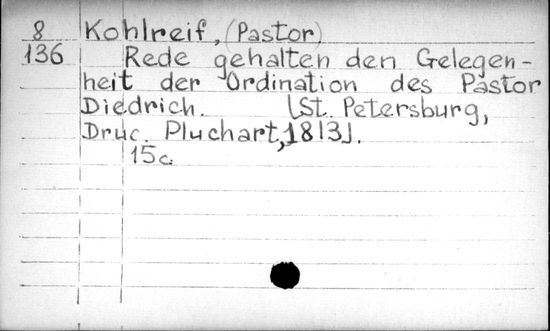 8 Kohlreif, (Pastor)
136 Rede gehalten den Gelegen-
heit der Ordination des Pastor
Diedrich. [St. Petersburg,
Druc. Pluchart, 1813].
15c.